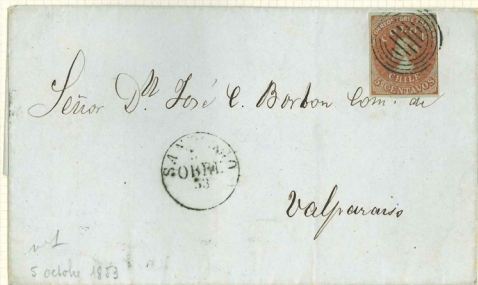 CHILE
CENTAVOS
Señor Dn José C. Borbon Com. de
SANTIAGO
OBRE
53
Valparaiso
5 octobre 1853